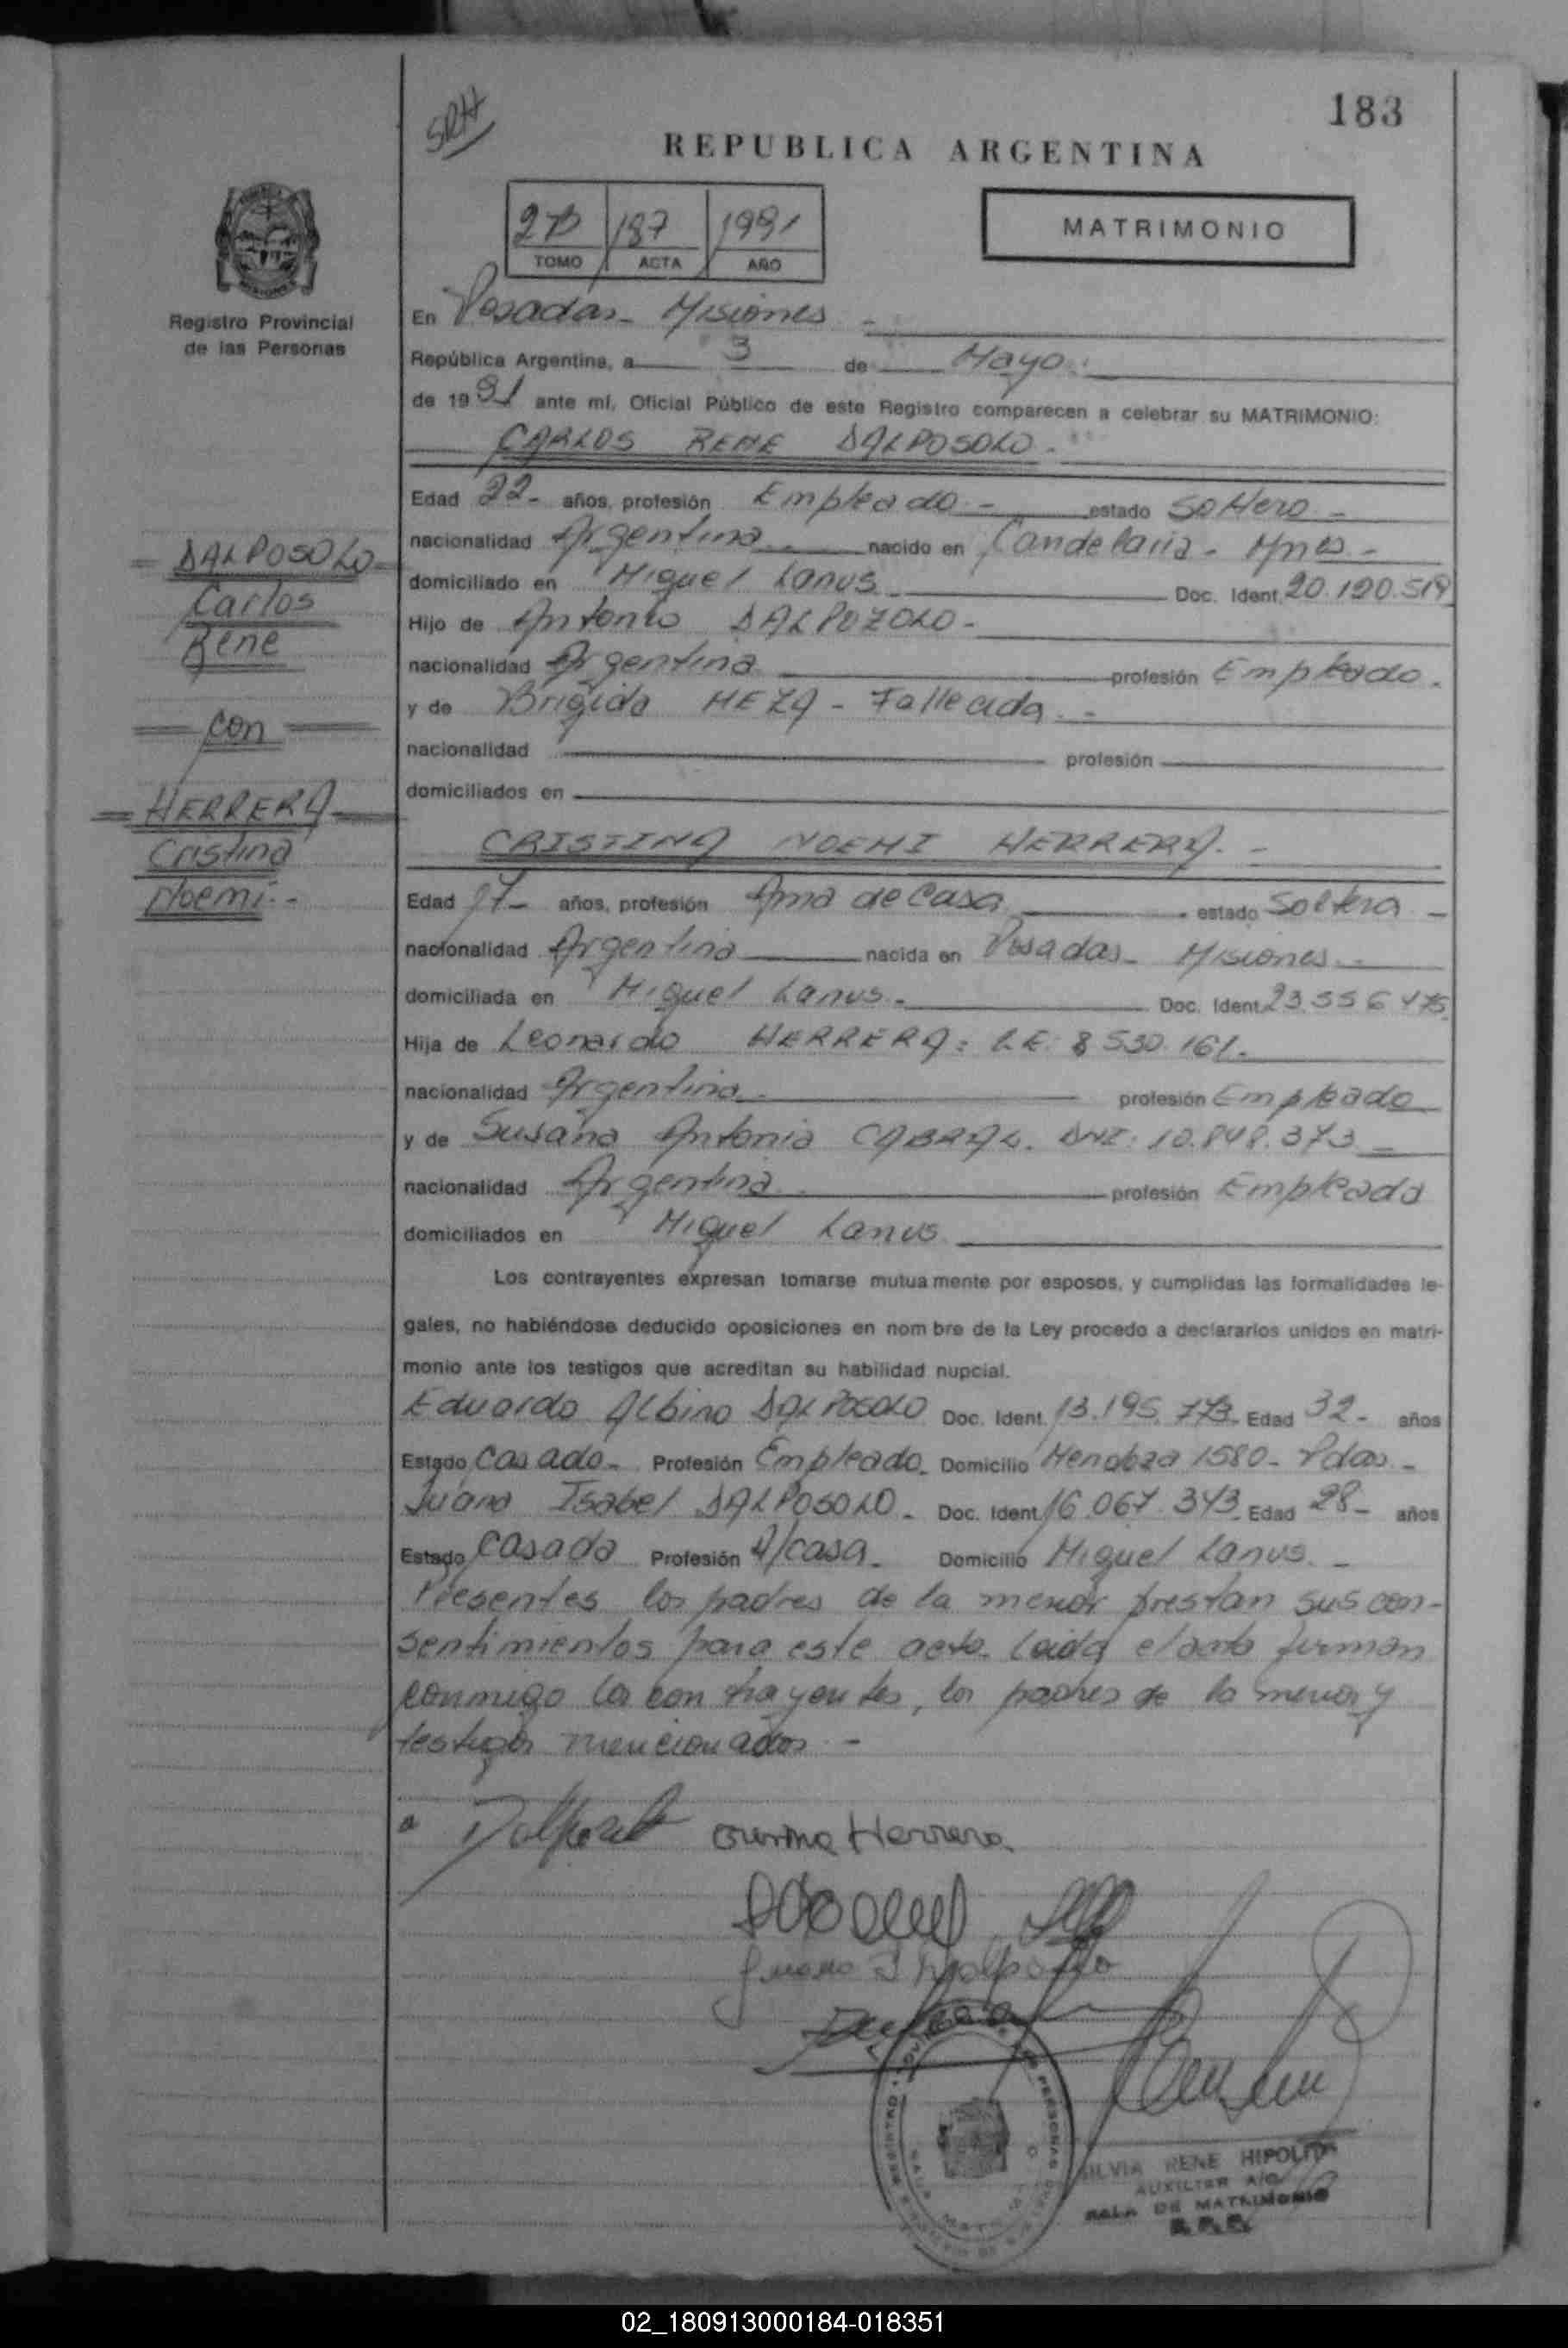 183
SRH
REPUBLICA ARGENTINA
MATRIMONIO
187 1991
TOMO ACTA AÑO
Registro Provincial
de las Personas
En Posadas - Misiones -
República Argentina, a 3 de Mayo
de 1991 ante mí, Oficial Público de este Registro comparecen a celebrar su MATRIMONIO:
CARLOS RENE DALPOSOLO -
Edad 22- años, profesión Empleado - estado Soltero -
nacionalidad Argentina nacido en Candelaria - Mnes -
domiciliado en Miguel Lanus - Doc. Ident. 20.120.519
Hijo de Antonio DALPOZOLO -
nacionalidad Argentina profesión Empleado.
y de Brigida MEZA - Fallecida -
nacionalidad profesión
domiciliados en
= DALPOSOLO =
Carlos
Rene
= con =
= HERRERA =
Cristina
Noemi.-
CRISTINA NOEMI HERRERA. -
Edad 17- años, profesión Ama de Casa - estado Soltera -
nacionalidad Argentina nacida en Posadas - Misiones -
domiciliada en Miguel Lanus - Doc. Ident. 23.556.475
Hija de Leonardo HERRERA: L.E: 8.530.161.
nacionalidad Argentina profesión Empleado
y de Susana Antonia CABRAL. DNI: 10.848.373 -
nacionalidad Argentina profesión Empleada
domiciliados en Miguel Lanus
Los contrayentes expresan tomarse mutuamente por esposos, y cumplidas las formalidades le-
gales, no habiéndose deducido oposiciones en nombre de la Ley procedo a declararlos unidos en matri-
monio ante los testigos que acreditan su habilidad nupcial.
Eduardo Albino DALPOSOLO Doc. Ident. 13.195.773 Edad 32- años
Estado Casado - Profesión Empleado - Domicilio Mendoza 1580 - Pdas -
Juana Isabel DALPOSOLO - Doc. Ident. 16.067.343 Edad 28- años
Estado Casada Profesión A/casa - Domicilio Miguel Lanus. -
Presentes los padres de la menor prestan sus con-
sentimientos para este acto. Leida el acta firman
conmigo los contrayentes, los padres de la menor y
testigos mencionados -
Herrera
SILVIA RENE HIPOLITO
AUXILIAR A/C
SALA DE MATRIMONIO
R.P.P.
02_180913000184-018351